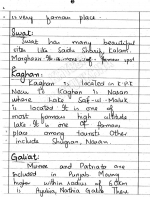 is very famous place.
Swat:
Swat has many beautiful
sites like Saidu Sharif, Kalam.
famous spot
Kaghan:
Kaghan is located in K.P.K
Near to Kaghan is Naran
where Lake Saif-ul-Maluk
is located. It is one of
most famous high altitude
lake. It is one of famous
place among tourist. Other
include Shugran, Naran.
Galiat:
Murree and Patriata are
included in Punjab. Many
higher within radius of
is Ayubia, Nathia Gali. There